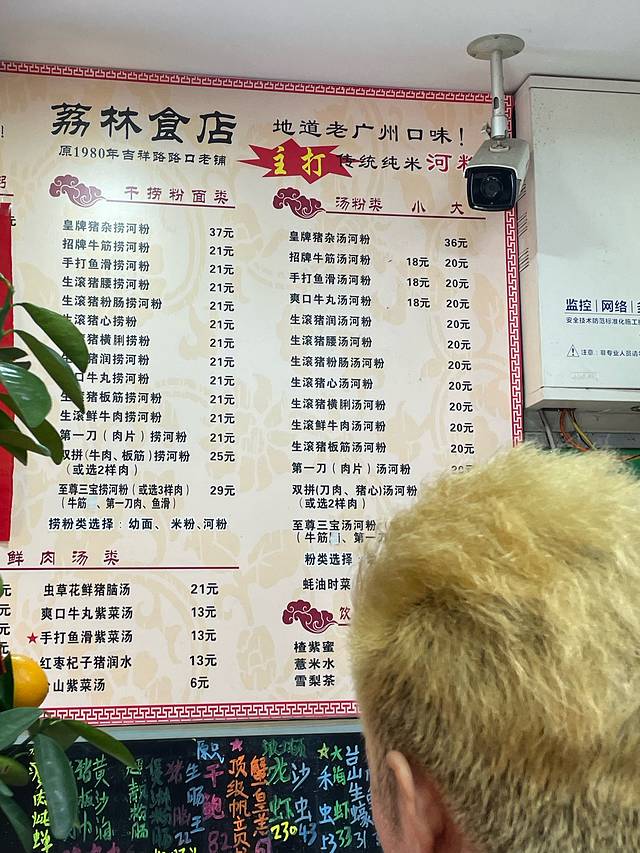 荔林食店
地道老广州口味！
原1980年吉祥路路口老铺
主打 传统纯米河粉
干捞粉面类
皇牌猪杂捞河粉 37元
招牌牛筋捞河粉 21元
手打鱼滑捞河粉 21元
生滚猪腰捞河粉 21元
生滚猪粉肠捞河粉 21元
生滚猪心捞粉 21元
猪横脷捞粉 21元
猪润捞河粉 21元
口牛丸捞河粉 21元
生滚猪板筋捞河粉 21元
生滚鲜牛肉捞河粉 21元
第一刀（肉片）捞河粉 21元
双拼(牛肉、板筋)捞河粉 25元
（或选2样肉）
至尊三宝捞河粉（或选3样肉） 29元
（牛筋、第一刀肉、鱼滑）
捞粉类选择：幼面、米粉、河粉
汤粉类 小 大
皇牌猪杂汤河粉 36元
招牌牛筋汤河粉 18元 20元
手打鱼滑汤河粉 18元 20元
爽口牛丸汤河粉 18元 20元
生滚猪润汤河粉 20元
生滚猪腰汤河粉 20元
生滚猪粉肠汤河粉 20元
生滚猪心汤河粉 20元
生滚猪横脷汤河粉 20元
生滚鲜牛肉汤河粉 20元
生滚猪板筋汤河粉 20元
第一刀（肉片）汤河粉 20元
双拼(刀肉、猪心)汤河粉
（或选2样肉）
至尊三宝汤河粉
（牛筋、第一
粉类选择
蚝油时菜
鲜肉汤类
虫草花鲜猪脑汤 21元
爽口牛丸紫菜汤 13元
★手打鱼滑紫菜汤 13元
红枣杞子猪润水 13元
山紫菜汤 6元
饮
楂紫蜜
薏米水
雪梨茶
监控|网络|
安全技术防范标准化施工
注意：非专业人员请
生肠王
干鲍
顶级
蟹皇
老虾230
沙虫43
禾虫53
大海虾33
台山生蚝31